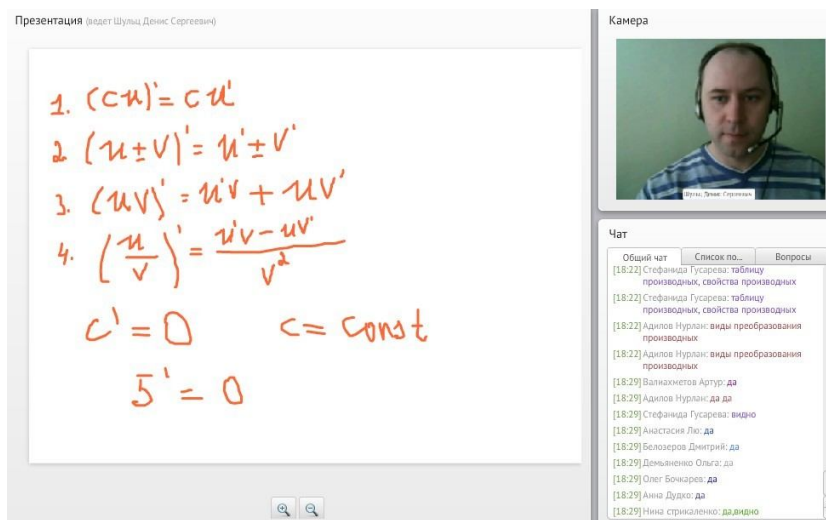 Презентация (ведет Шульц Денис Сергеевич)
1. (cu)' = cu'
2. (u ± v)' = u' ± v'
3. (uv)' = u'v + uv'
4. (u/v)' = (u'v − uv')/v²
c' = 0 c = const
5' = 0
Камера
Шульц Денис Сергеевич
Чат
Общий чат Список по... Вопросы
[18:22] Стефанида Гусарева: таблицу
производных, свойства производных
[18:22] Стефанида Гусарева: таблицу
производных, свойства производных
[18:22] Адилов Нурлан: виды преобразования
производных
[18:22] Адилов Нурлан: виды преобразования
производных
[18:29] Валиахметов Артур: да
[18:29] Адилов Нурлан: да да
[18:29] Стефанида Гусарева: видно
[18:29] Анастасия Лю: да
[18:29] Белозеров Дмитрий: да
[18:29] Демьяненко Ольга: да
[18:29] Олег Бочкарев: да
[18:29] Анна Дудко: да
[18:29] Нина стрикаленко: да,видно